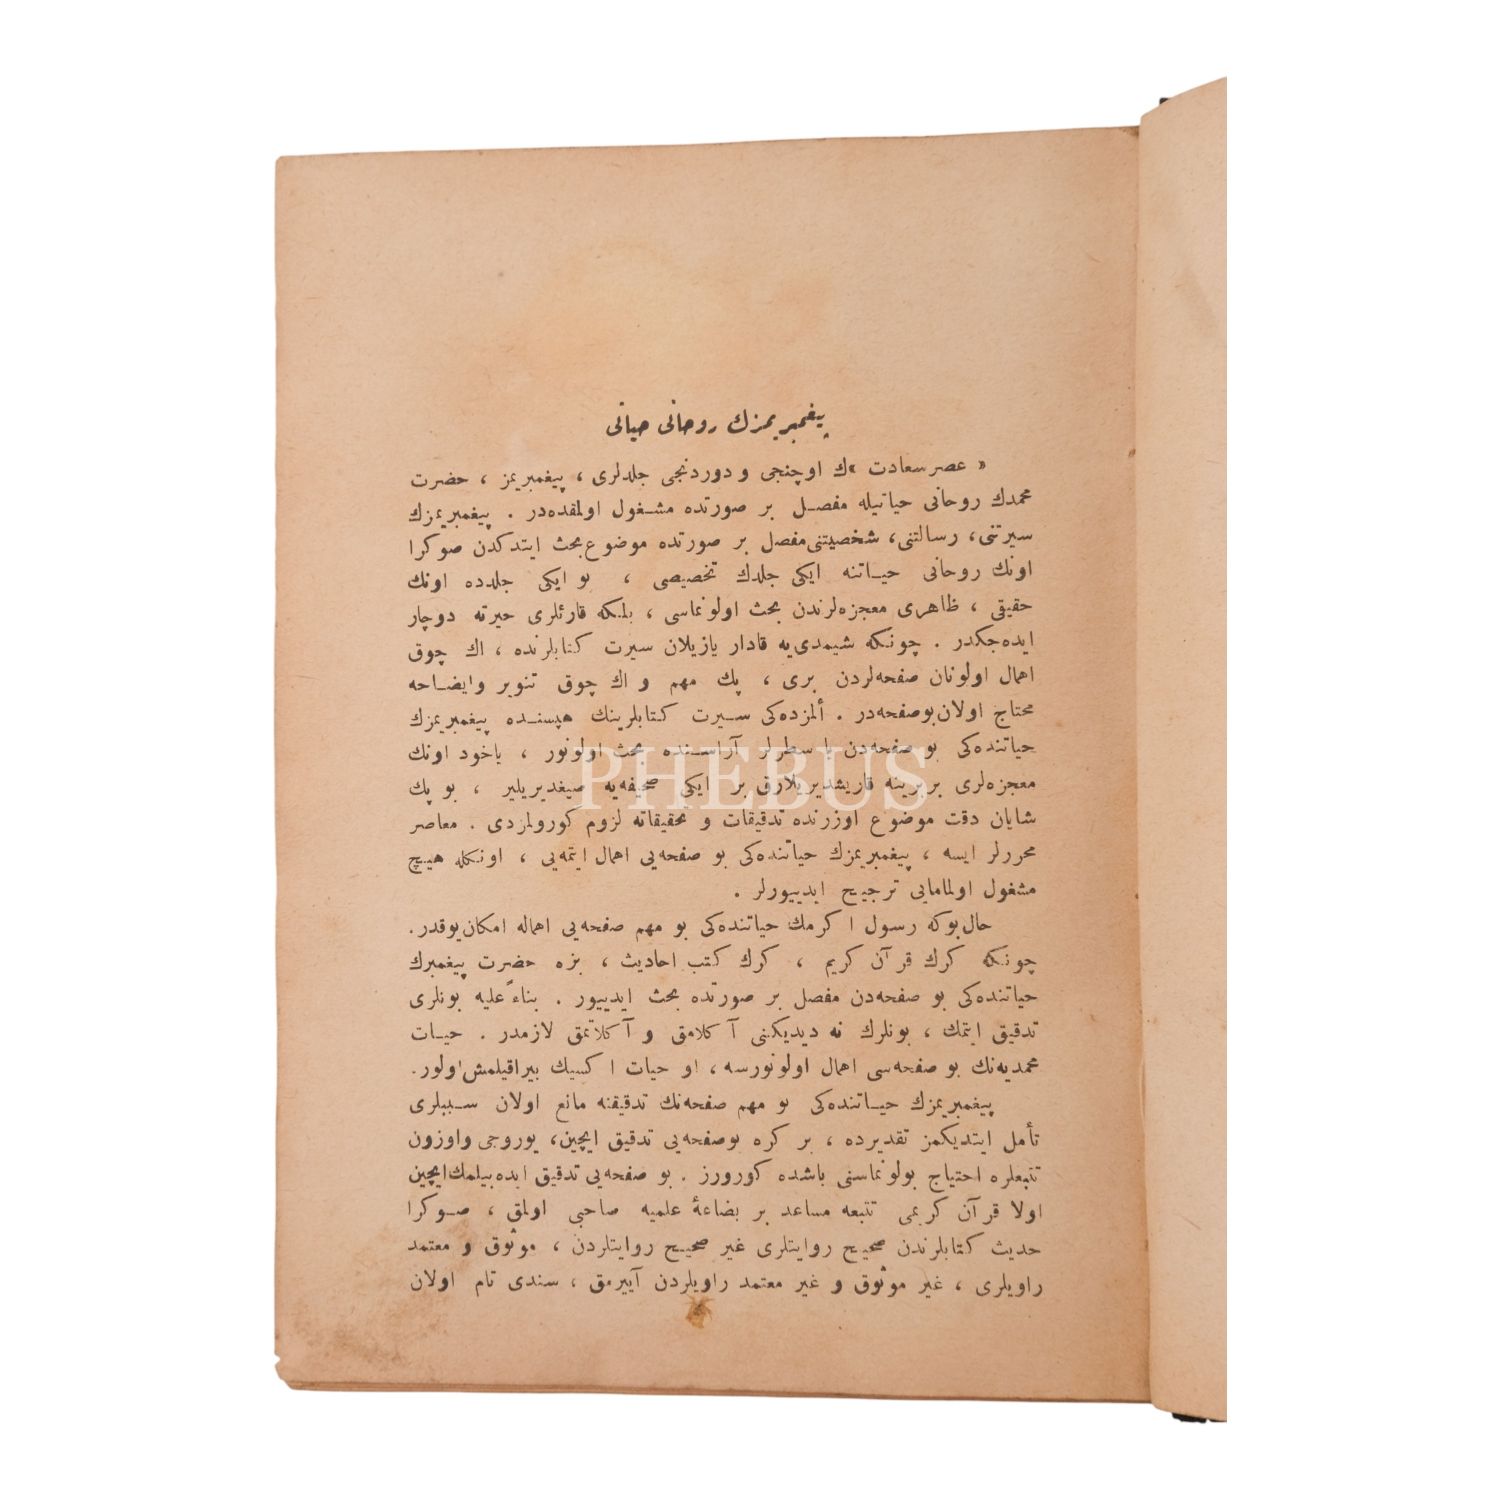 پیغمبریمزك روحانی حیاتی
« عصر سعادت »ك اوچنجی و دوردنجی جلدلری ، پیغمبریمز ، حضرت
محمدك روحانی حیاتیله مفصـل بر صورتده مشـغول اولمقده‌در . پیغمبریمزك
سیرتنی، رسالتنی، شخصیتنی مفصل بر صورتده موضوع بحث ایتدكدن صوكرا
اونك روحانی حیـاتنه ایكی جلدك تخصیصی ، بو ایكی جلدده اونك
حقیقی ، ظاهری معجزه‌لرندن بحث اولونماسی ، بلكه قارئلری حیرته دوچار
ایده‌جكدر . چونكه شیمدی‌یه قادار یازیلان سیرت كتابلرنده ، اك چوق
اهمال اولونان صفحه‌لردن بری ، پك مهم و اك چوق تنویر و ایضـاحه
محتاج اولان بو صفحه‌در . ألمزده‌كی سـیرت كتابلرینك هپسنـده پیغمبریمزك
حیاتنده‌كی بو صفحه‌دن یا سطرلر آراسـنده بحث اولونور ، یاخود اونك
معجزه‌لری بربرینه قاریشدیریلارق بر ایكی صحیفه‌یه صیغدیریلیر ، بو پك
شایان دقت موضوع اوزرنده تدقیقات و تحقیقاته لزوم كورولمزدی . معاصر
محررلر ایسه ، پیغمبریمزك حیاتنده‌كی بو صفحه‌یی اهمال ایتمه‌یی ، اونكله هیچ
مشغول اولمامایی ترجیح ایدییورلر .
حال بوكه رسول اكرمك حیاتنده‌كی بو مهم صفحه‌یی اهماله امكان یوقدر.
چونكه كرك قرآن كریم ، كرك كتب احادیث ، بزه حضرت پیغمبرك
حیاتنده‌كی بو صفحه‌دن مفصل بر صورتده بحث ایدییور . بناءً علیه بونلری
تدقیق ایتمك ، بونلرك نه دیدیكنی آكلامق و آكلاتمق لازمدر . حیـات
محمدیه‌نك بو صفحه‌سی اهمال اولونورسه ، او حیات اكسیك بیراقیلمش اولور.
پیغمبریمزك حیـاتنده‌كی بو مهم صفحه‌نك تدقیقنه مانع اولان سـببلری
تأمل ایتدیكمز تقدیرده ، بر كره بو صفحه‌یی تدقیق ایچین، یوروجی و اوزون
تتبعلره احتیاج بولونماسنی باشده كورورز . بو صفحه‌یی تدقیق ایده‌بیلمك ایچین
اولا قرآن كریمی تتبعه مساعد بر بضاعهٔ علمیه صاحبی اولمق ، صـوكرا
حدیث كتابلرندن صحیح روایتلری غیر صحیح روایتلردن ، موثوق و معتمد
راویلری ، غیر موثوق و غیر معتمد راویلردن آییرمق ، سندی تام اولان
PHEBUS